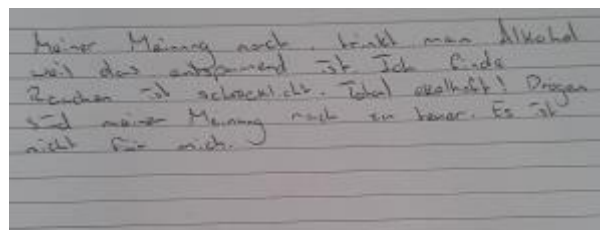 Meiner Meinung nach, trinkt man Alkohol
weil das entspannend ist Ich finde
Rauchen ist schrecklich. Total ekelhaft! Drogen
sind meiner Meinung nach zu teuer. Es ist
nicht für mich.